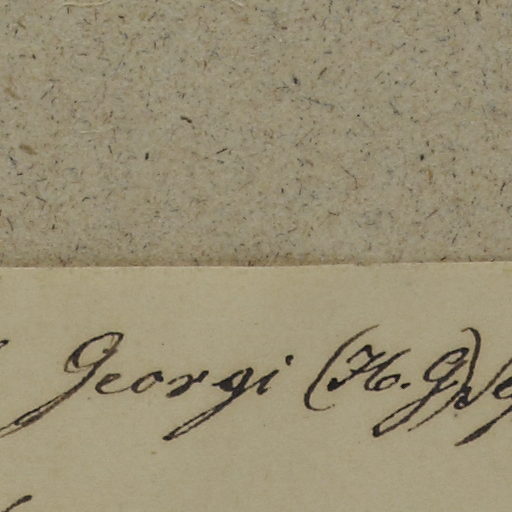 Georgi (H. G)